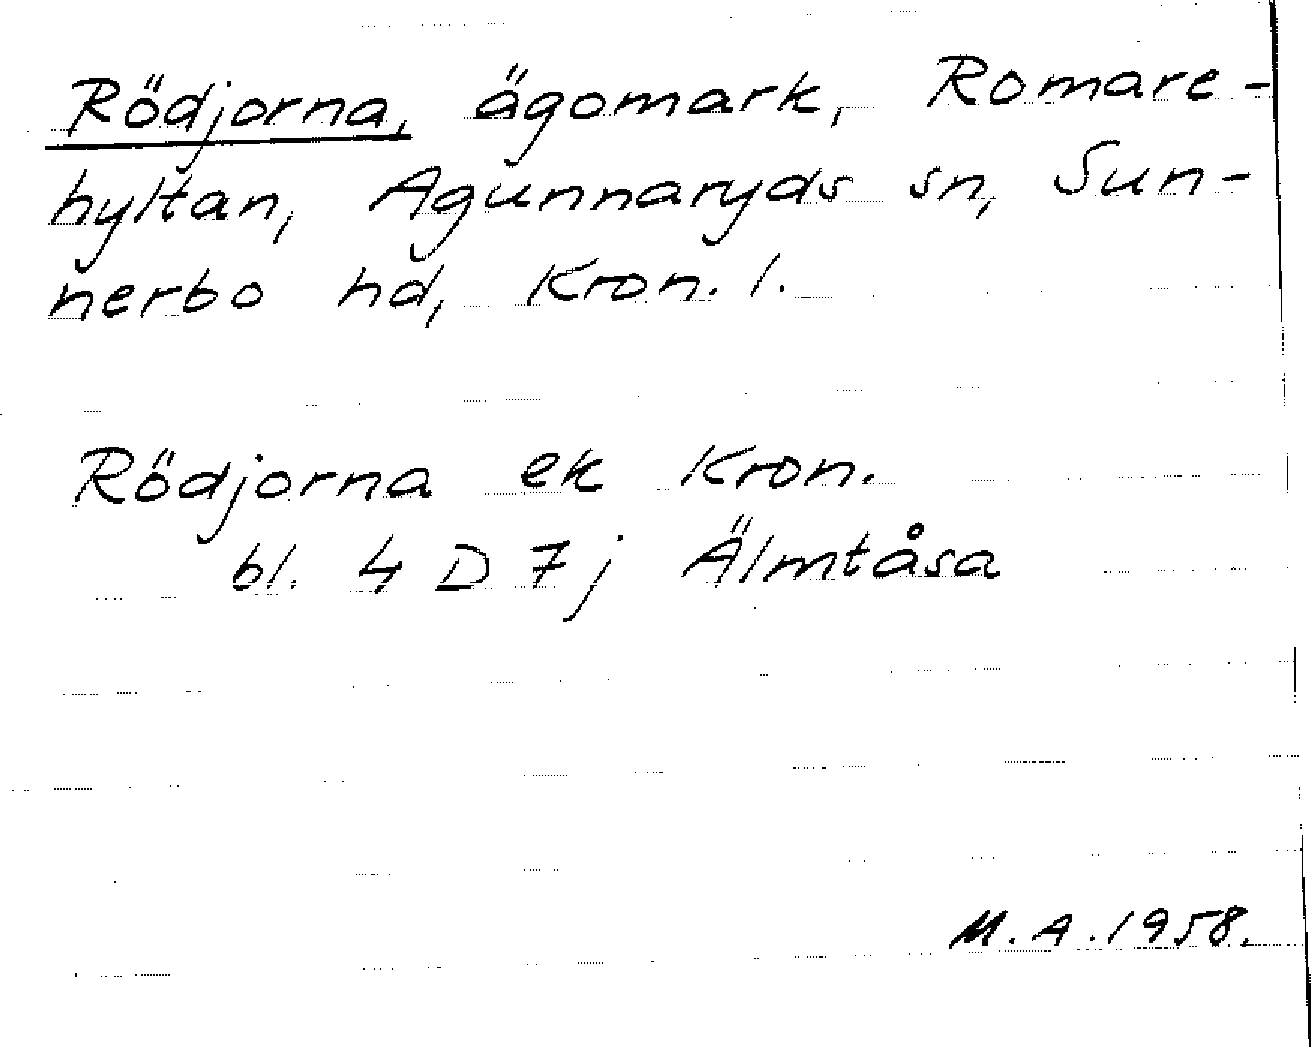 Rödjorna, ägomark, Romare-
hyltan, Agunnaryds sn, Sun-
nerbo hd, Kron. l.
Rödjorna ek Kron.
bl. 4 D 7 j Älmtåsa
M.A. 1958.